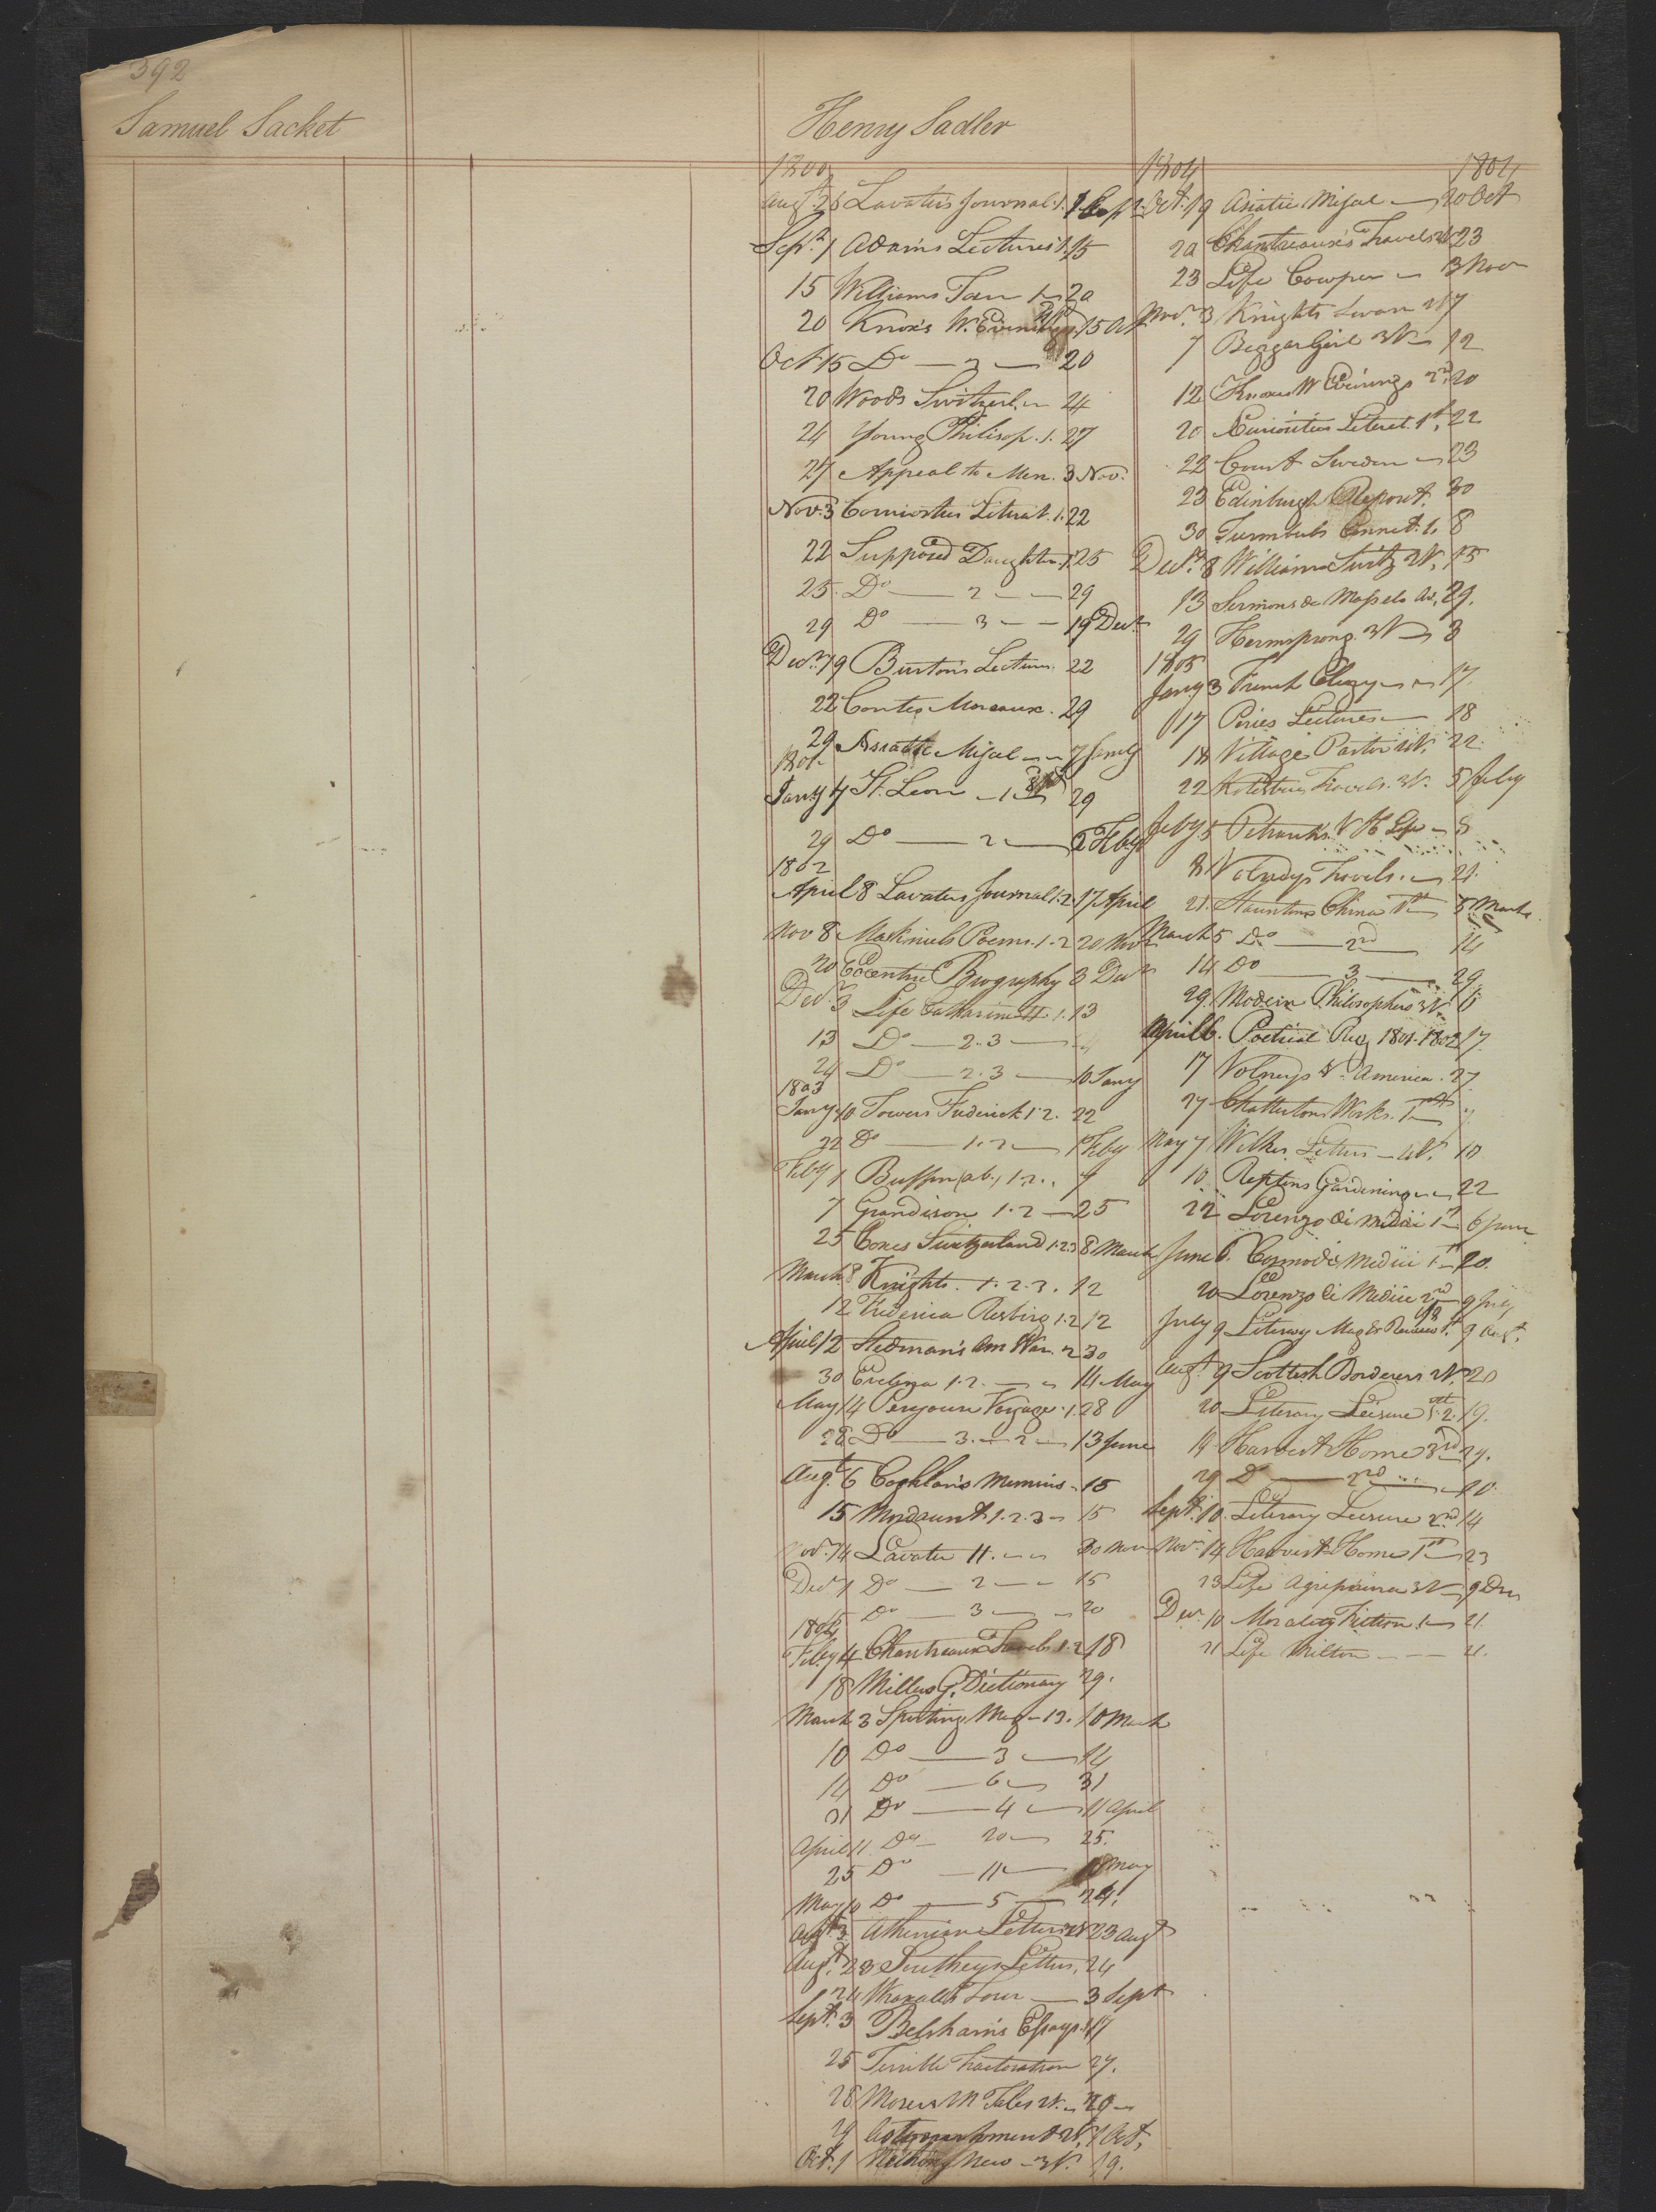 392
Samuel Sacket
Henry Sadler
1800
Augt. 26 Lavaters Journal. 1. 1 Sepr
Sept. 1 Adam's Lectures 1. 15
15 Williams Tour 1 20
20 Knox's W. Evenings 15 Oct
Oct 15 Do 2 20
20 Woods Switzerl. 24
24 Young Philisop. 1. 27
27 Appeal to Men. 3 Nov.
Nov. 3 Literat. 1. 22
22 Supposed Daughter. 1. 25
25. Do 2 29
29 Do 3 19 Decr
Decr. 19 Burton's Lectures 22
22 Contes Moraux. 29
29 Asiatic Misel 7 Jany
1801
Jany 7 St. Leon 1 29
29 Do 2 2 Feby
1802
April 8 Lavaters Journal 1.2. 17 April
Nov 8 Macniels Poems. 1.2 20 Novr
20 Eccentric Biography 3 Decr
Decr. 3 Life Catharine II. 1. 13
13 Do 2.3
24 Do 2.3 10 Jany
1803
Jany 10 Towers Frederick 1.2. 22
22 Do 1.2 1 Feby
Feby 1 Buffon (ab.) 1.2. 7
7 Grandison 1.2 25
25 Coxes Switzerland 1.2.3 8 March
March 8 Knights. 1.2.3. 12
12 Frederica Risberg 1.2 12
April 12 Stedman's Am War. 2 30
30 Evelina 1.2. 14 May
May 14 Perouse Voyage. 1. 28
28 Do 3. 2 13 June
Augt. 6 Coghlan's Memoirs 15
15 Mordaunt 1.2.3 15
Novr. 14 Lavater 11. 30 Nov
Decr 1 Do 2 15
15 Do 3 20
1804
Feby 4 Chantreaux Travels 1.2 18
18 Millers G. Dictionary 29.
March 3 Sporting Mag 13. 10 March
10 Do 3 14
14 Do 6 31
31 Do 4 11 April
April 11. Do 20 25.
25 Do 11 10 May
May 10 Do 5 24.
Augt 3 Athenian Letters 2V 23 Augt
Augt. 23 Southeys Letters. 24
24 Wraxalls Tour 3 Sept
Sept. 3 Belsham's Essays. 17
25 Terrible Tractoration 27.
28 Moses M Tales 2V. 29
29 Astonishment 2V. 1 Oct.
Oct. 1 Nothing New 3V. 19.
1804 1804
Oct. 19 Asiatic Misel 20 Oct
20 Chantreaux's Travels 2V 23
23 Life Cowper 3 Nov
Novr. 3 Knights Swan 2V 7
7 Beggar Girl 3V 12
12 Knoxes W Evenings 2nd. 20
20 Curiosities Literat. 1st. 22
22 Court Sweden 23
23 Edinburgh Report. 30
30 Turnbuls Connet. 1. 8
Decr. 8 Williams Switz 2V. 13
13 Sermons de Masselo 29.
29 Hermsprong. 3V 3
1805
Jany 3 French Clergy 17.
17 Piries Lectures 18
18 Village Pastor 22.
22 Kotzebues Travels. 3V. 5 Feby
Feby 5 Petrarchs V & Life 8
8 Volneys Travels. 21.
21. Stauntons China 1st 5 March
March 5 Do 2nd 14
14 Do 3 29
29. Modern Philosophers 3V 6
April 6. Poetical Reg 1801-1802 17.
17 Volneys V. America. 27
27 Chattertons Works. 1st 7
May 7 Wilkes Letters 4V. 10
10 Reptons Gardening 22
22 Lorenzo de Medici 1st 6 June
June 6. Cosmo de Medici 1st 20.
20 Lorenzo de Medici 2nd 9 July
July 9 Literary Mag & Review 1st. 9 Augt.
Augt. 9 Scottish Borderers 2V. 20
20 Literary Leisure 19.
19 Harvest Home 3rd 29.
29 Do 2nd 10
Sept. 10. Literary Leisure 2nd 14
Novr. 14 Harvest Home 1st 23
23 Life Agrippina 3V 9 Dec
Decr. 10 Morality Fiction. 1 21.
21 Life Milton